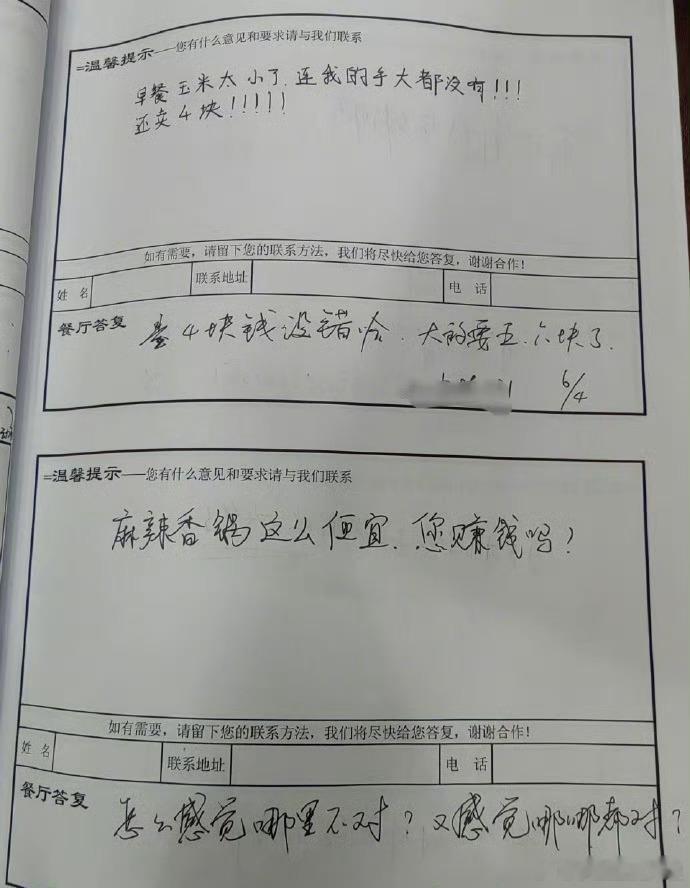 =温馨提示——您有什么意见和要求请与我们联系
早餐 玉米太小了.连我的手大都没有!!!
还卖4块!!!!!
如有需要，请留下您的联系方法，我们将尽快给您答复，谢谢合作！
姓 名 联系地址 电 话
餐厅答复 4块钱没错哈.大的要五.六块了.
6/4
=温馨提示——您有什么意见和要求请与我们联系
麻辣香锅这么便宜.您赚钱吗?
如有需要，请留下您的联系方法，我们将尽快给您答复，谢谢合作！
姓 名 联系地址 电 话
餐厅答复 怎么感觉哪里不对?又感觉哪哪都对?